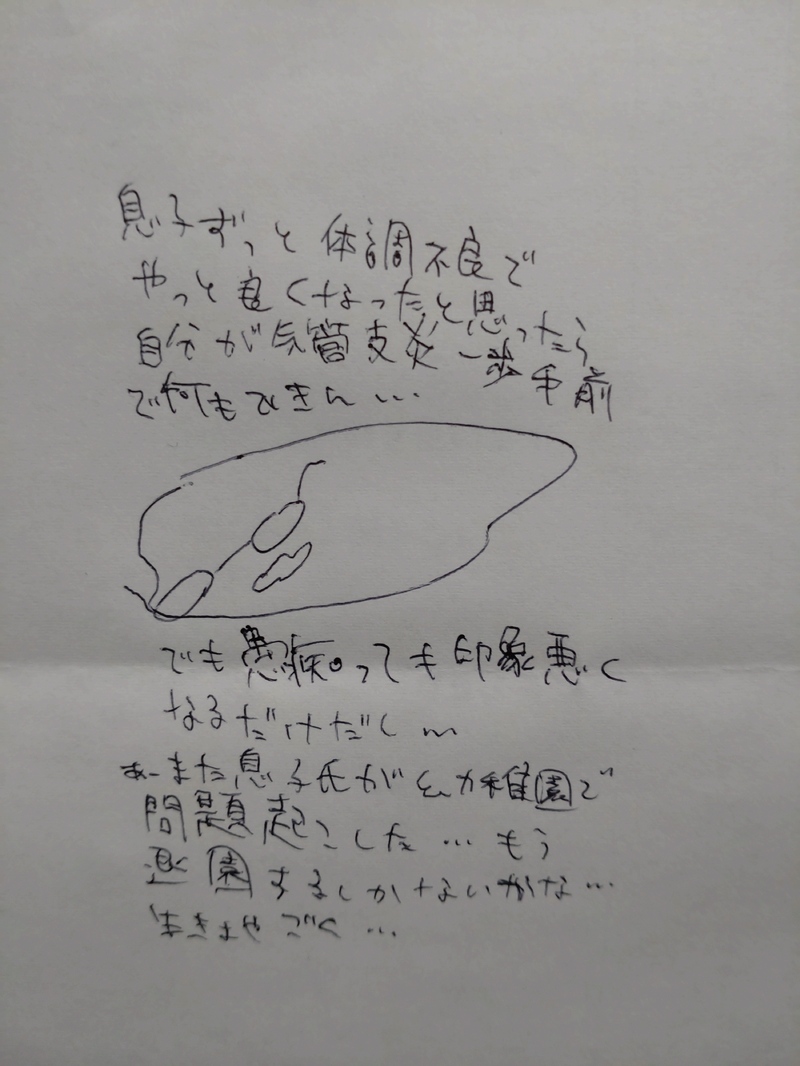 息子ずっと体調不良で
やっと良くなったと思ったら
自分が気管支炎一歩手前
で何もできん…
でも愚痴っても印象悪く
なるだけだし
あーまた息子氏が幼稚園で
問題起こした…もう
退園するしかないかな…
生き